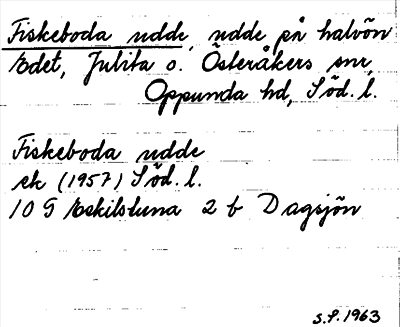 Fiskeboda udde, udde på halvön
Edet, Julita o. Österåkers snr,
Oppunda hd, Söd. l.
Fiskeboda udde
ek (1957) Söd. l.
10 G Eskilstuna 2 b Dagsjön
S.P. 1963